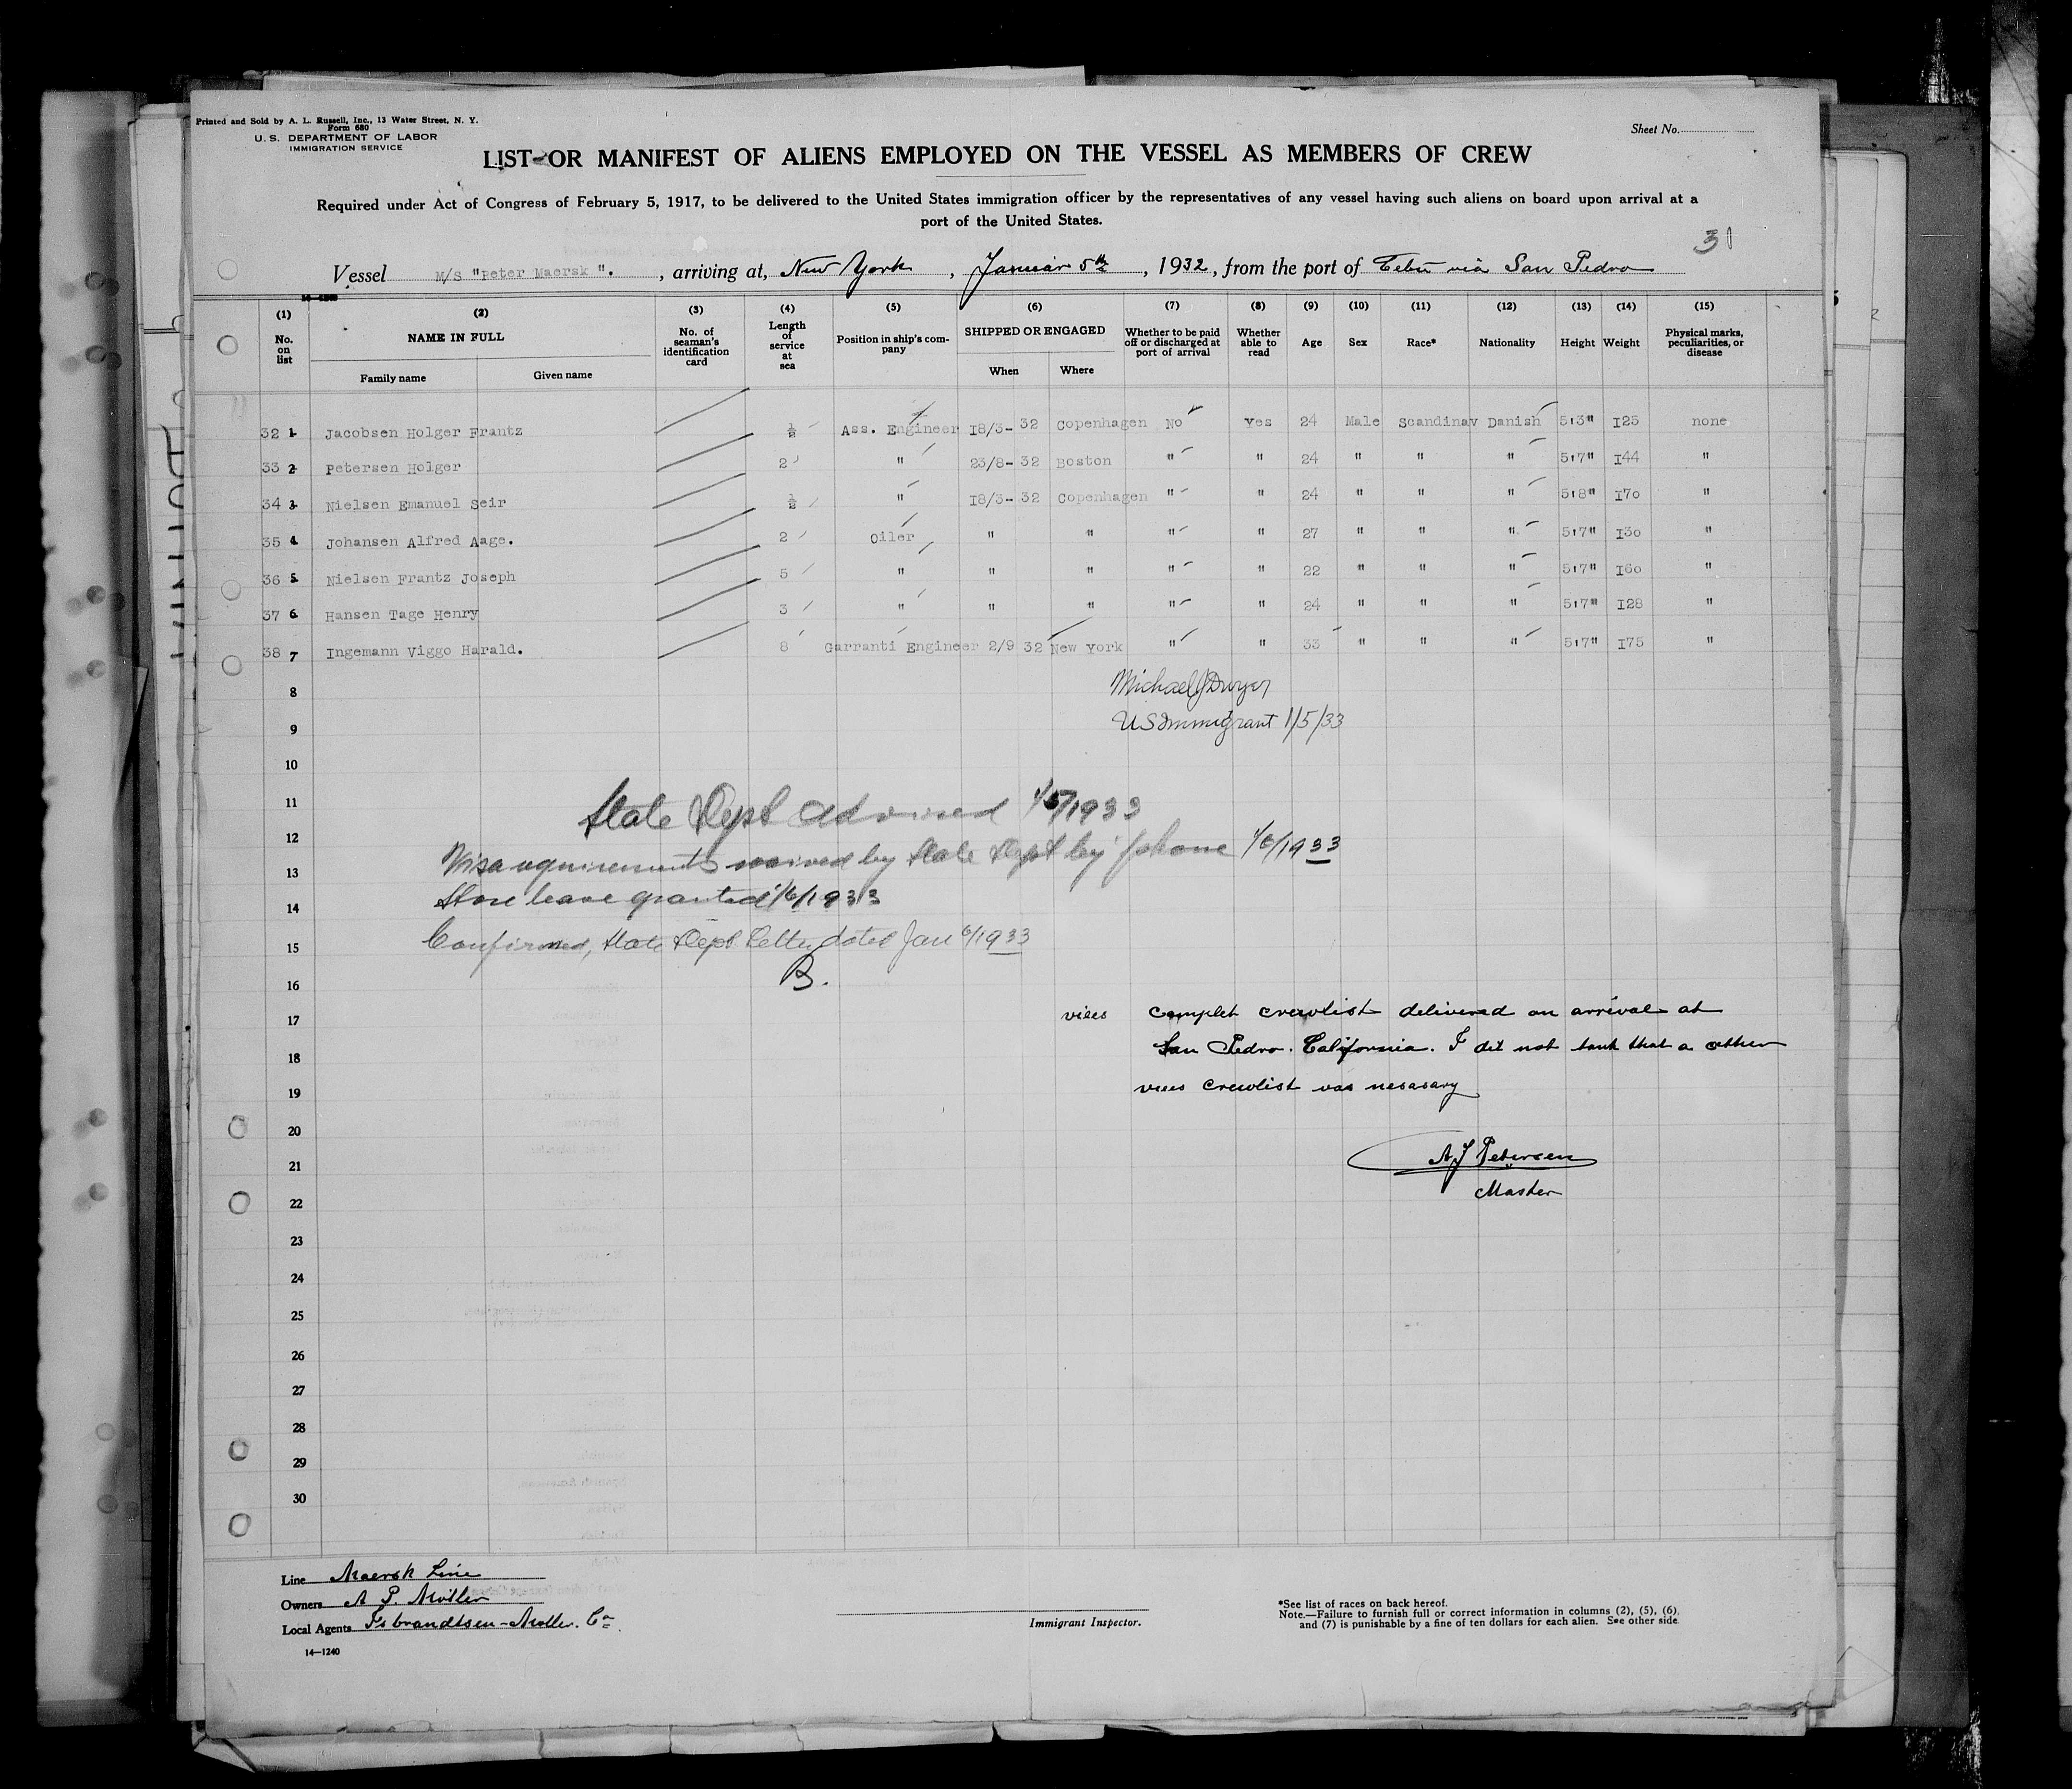 Printed and Sold by A. L. Russell, Inc., 13 Water Street, N. Y.
Form 680
U. S. DEPARTMENT OF LABOR
IMMIGRATION SERVICE
Sheet No.
LIST OR MANIFEST OF ALIENS EMPLOYED ON THE VESSEL AS MEMBERS OF CREW
Required under Act of Congress of February 5, 1917, to be delivered to the United States immigration officer by the representatives of any vessel having such aliens on board upon arrival at a
port of the United States.
31
Vessel M/S "Peter Maersk ". , arriving at, New York , Januar 5th , 1932, from the port of Cebu via San Pedro
(1) No. on list
(2) NAME IN FULL
Family name Given name
(3) No. of seaman's identification card
(4) Length of service at sea
(5) Position in ship's company
(6) SHIPPED OR ENGAGED
When Where
(7) Whether to be paid off or discharged at port of arrival
(8) Whether able to read
(9) Age
(10) Sex
(11) Race*
(12) Nationality
(13) Height
(14) Weight
(15) Physical marks, peculiarities, or disease
32 1 Jacobsen Holger Frantz ½ Ass. Engineer 18/3- 32 Copenhagen No Yes 24 Male Scandinav Danish 5'3" 125 none
33 2 Petersen Holger 2 " 23/8- 32 Boston " " 24 " " " 5'7" 144 "
34 3 Nielsen Emanuel Seir ½ " 18/3- 32 Copenhagen " " 24 " " " 5'8" 170 "
35 4 Johansen Alfred Aage. 2 Oiler " " " " 27 " " " 5'7" 130 "
36 5 Nielsen Frantz Joseph 5 " " " " " 22 " " " 5'7" 160 "
37 6 Hansen Tage Henry 3 " " " " " 24 " " " 5'7" 128 "
38 7 Ingemann Viggo Harald. 8 Garranti Engineer 2/9 32 New York " " 33 " " " 5'7" 175 "
8 Michael J Dwyer
9 US Immigrant 1/5/33
10
11 State Dept advised 1/5/1933
12
13 Visa requirements waived by State Dept by phone 1/6/1933
14 Shore leave granted 1/6/1933
15 Confirmed, State Dept. Letter dated Jan 6/1933
16 B.
17 viees complet crewlist delivered on arrival at
18 San Pedro. California. I dit not tank that a other
19 viees crewlist vas nesasary
20
21 A J Petersen
22 Master
23
24
25
26
27
28
29
30
Line Maersk Line
Owners A. P. Möller
Local Agents Isbrandtsen-Moller. Co.
14—1240
Immigrant Inspector.
*See list of races on back hereof.
Note.—Failure to furnish full or correct information in columns (2), (5), (6),
and (7) is punishable by a fine of ten dollars for each alien. See other side.